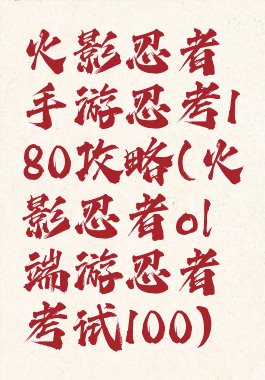 火影忍者
手游忍考1
80攻略(火
影忍者ol
端游忍者
考试100)